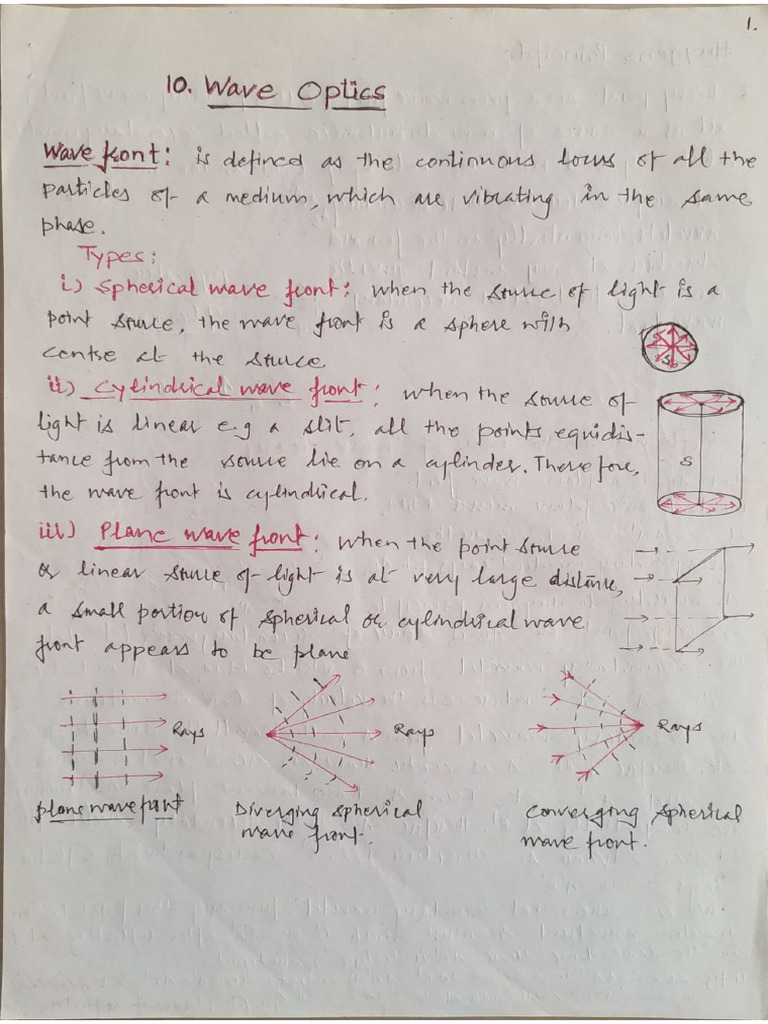 1.
10. Wave Optics
Wave front: is defined as the continuous locus of all the
particles of a medium, which are vibrating in the same
phase.
Types:
i) Spherical wave front: when the source of light is a
point source, the wave front is a sphere with
centre at the source
S
ii) Cylindrical wave front: when the source of
light is linear e.g a slit, all the points equidis-
tance from the source lie on a cylinder. Therefore,
the wave front is cylindrical.
S
iii) Plane wave front: when the point source
or linear source of light is at very large distance,
a small portion of spherical or cylindrical wave
front appears to be plane
Rays
Rays
Rays
plane wave front
Diverging spherical
wave front.
Converging spherical
wave front.